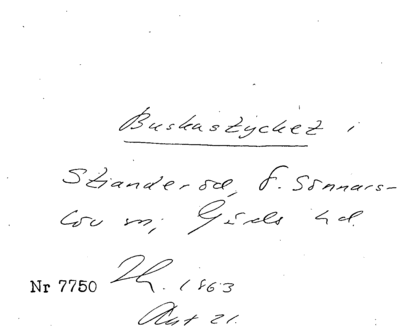 Buskastycket i
Stranderöd, f. Sönnars-
löv sn, Gärds hd.
Nr 7750 Th. 1863
Akt 21.